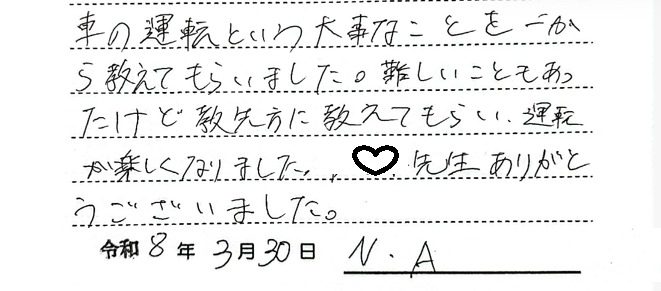 車の運転という大事なことを一か
ら教えてもらいました。難しいこともあっ
たけど教先方に教えてもらい、運転
が楽しくなりました、、♡、先生ありがと
うございました。
令和8年3月30日 N・A